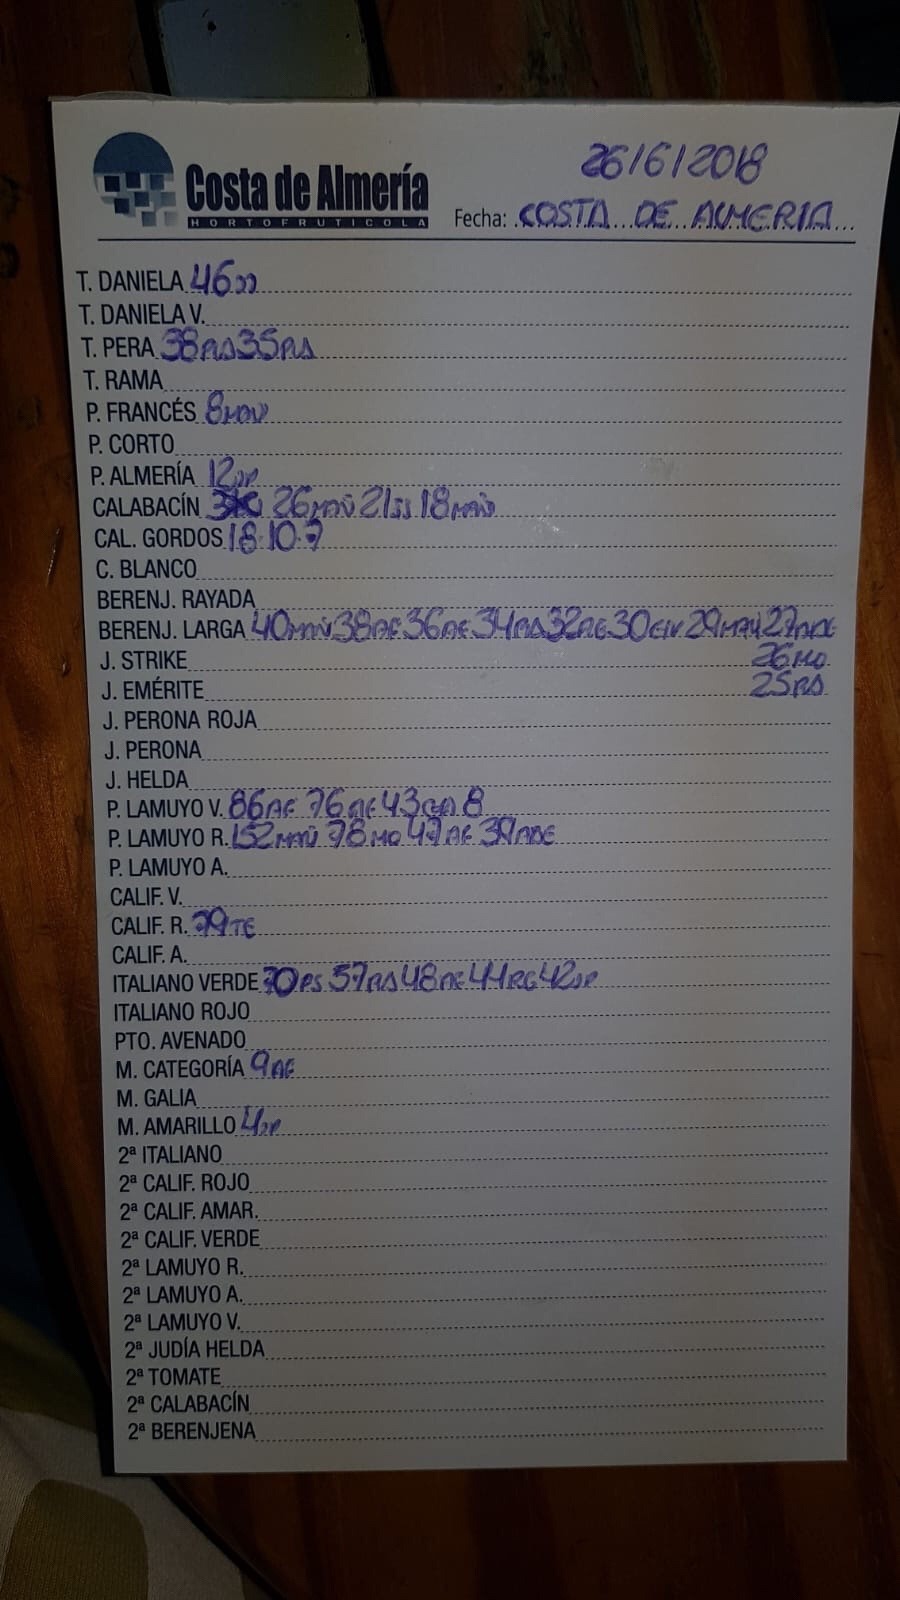 26/6/2018
Costa de Almería
HORTOFRUTICOLA
Fecha: COSTA DE ALMERIA
T. DANIELA 46JJ
T. DANIELA V.
T. PERA 38RS 35RS
T. RAMA
P. FRANCÉS 8
P. CORTO
P. ALMERÍA 12JP
CALABACÍN 26MAÑ 21JJ 18MAÑ
CAL. GORDOS 18·10·7
C. BLANCO
BERENJ. RAYADA
BERENJ. LARGA 40MAÑ 38AE 36AE 34RS 32AE 30 29 27
J. STRIKE 26MO
J. EMÉRITE 25RS
J. PERONA ROJA
J. PERONA
J. HELDA
P. LAMUYO V. 86AE 76AE 43 8
P. LAMUYO R. 152MAÑ 78MO 47AE 39ADE
P. LAMUYO A.
CALIF. V.
CALIF. R. 79TE
CALIF. A.
ITALIANO VERDE 57RS 48AE 44RG 42JP
ITALIANO ROJO
PTO. AVENADO
M. CATEGORÍA 9AE
M. GALIA
M. AMARILLO 4JP
2ª ITALIANO
2ª CALIF. ROJO
2ª CALIF. AMAR.
2ª CALIF. VERDE
2ª LAMUYO R.
2ª LAMUYO A.
2ª LAMUYO V.
2ª JUDÍA HELDA
2ª TOMATE
2ª CALABACÍN
2ª BERENJENA